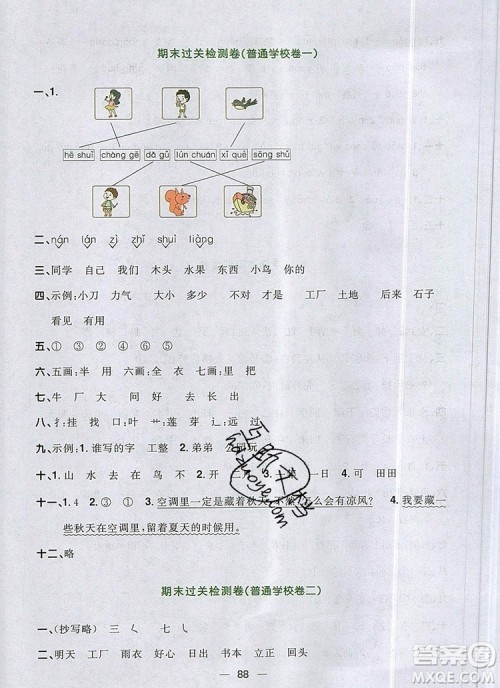 期末过关检测卷(普通学校卷一)
一、1.
hē shuǐ chàng gē dǎ gǔ lún chuán xǐ què sōng shǔ
二、nán lán zì zhǐ shuǐ liàng
三、同学 自己 我们 木头 水果 东西 小鸟 你的
四、示例:小刀 力气 大小 多少 不对 是才 工厂 土地 后来 石子
看见 有用
五、① ③ ① ② ⑤ ④
六、五画:半 用 六画:全 衣 四画:天 开
七、牛 厂 大 问 好 去 长 出
八、扌:挂 找 口:
九、示例:1.谁写的字 工整 2.弟弟
十、1.山 水 去 在 鸟 不 2.开
十一、1.4 2. 3.空调里一定是藏着秋天 怎么会有凉风? 4.我要藏一
些秋天在空调里,留着夏天的时候用。
十二、略
期末过关检测卷(普通学校卷二)
一、(抄写略) 三 ㇃ 七 ㇃
二、明天 工厂 雨衣 好心 日出 书本 立正 回头
88
答案圈
MXQE.COM